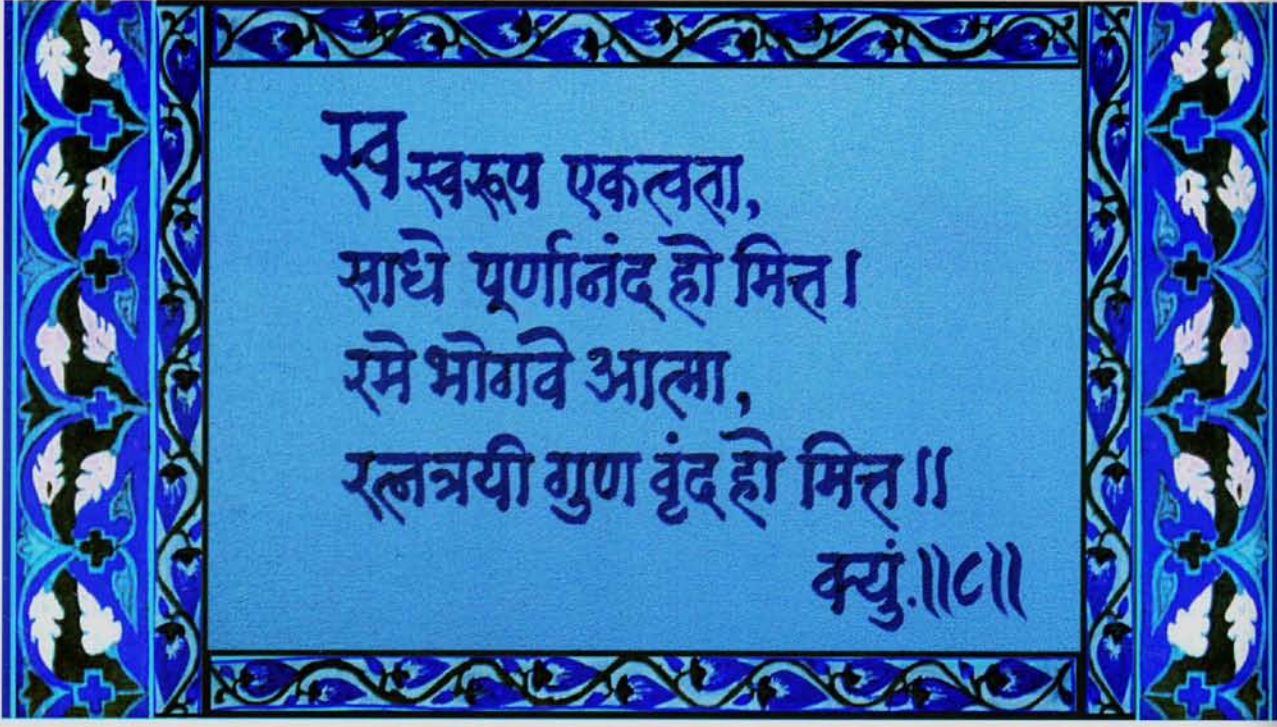 स्व स्वरूप एकत्वता,
साधे पूर्णानंद हो मित्त।
रमे भोगवे आत्मा,
रत्नत्रयी गुण वृंद हो मित्त॥
क्युं.॥८॥